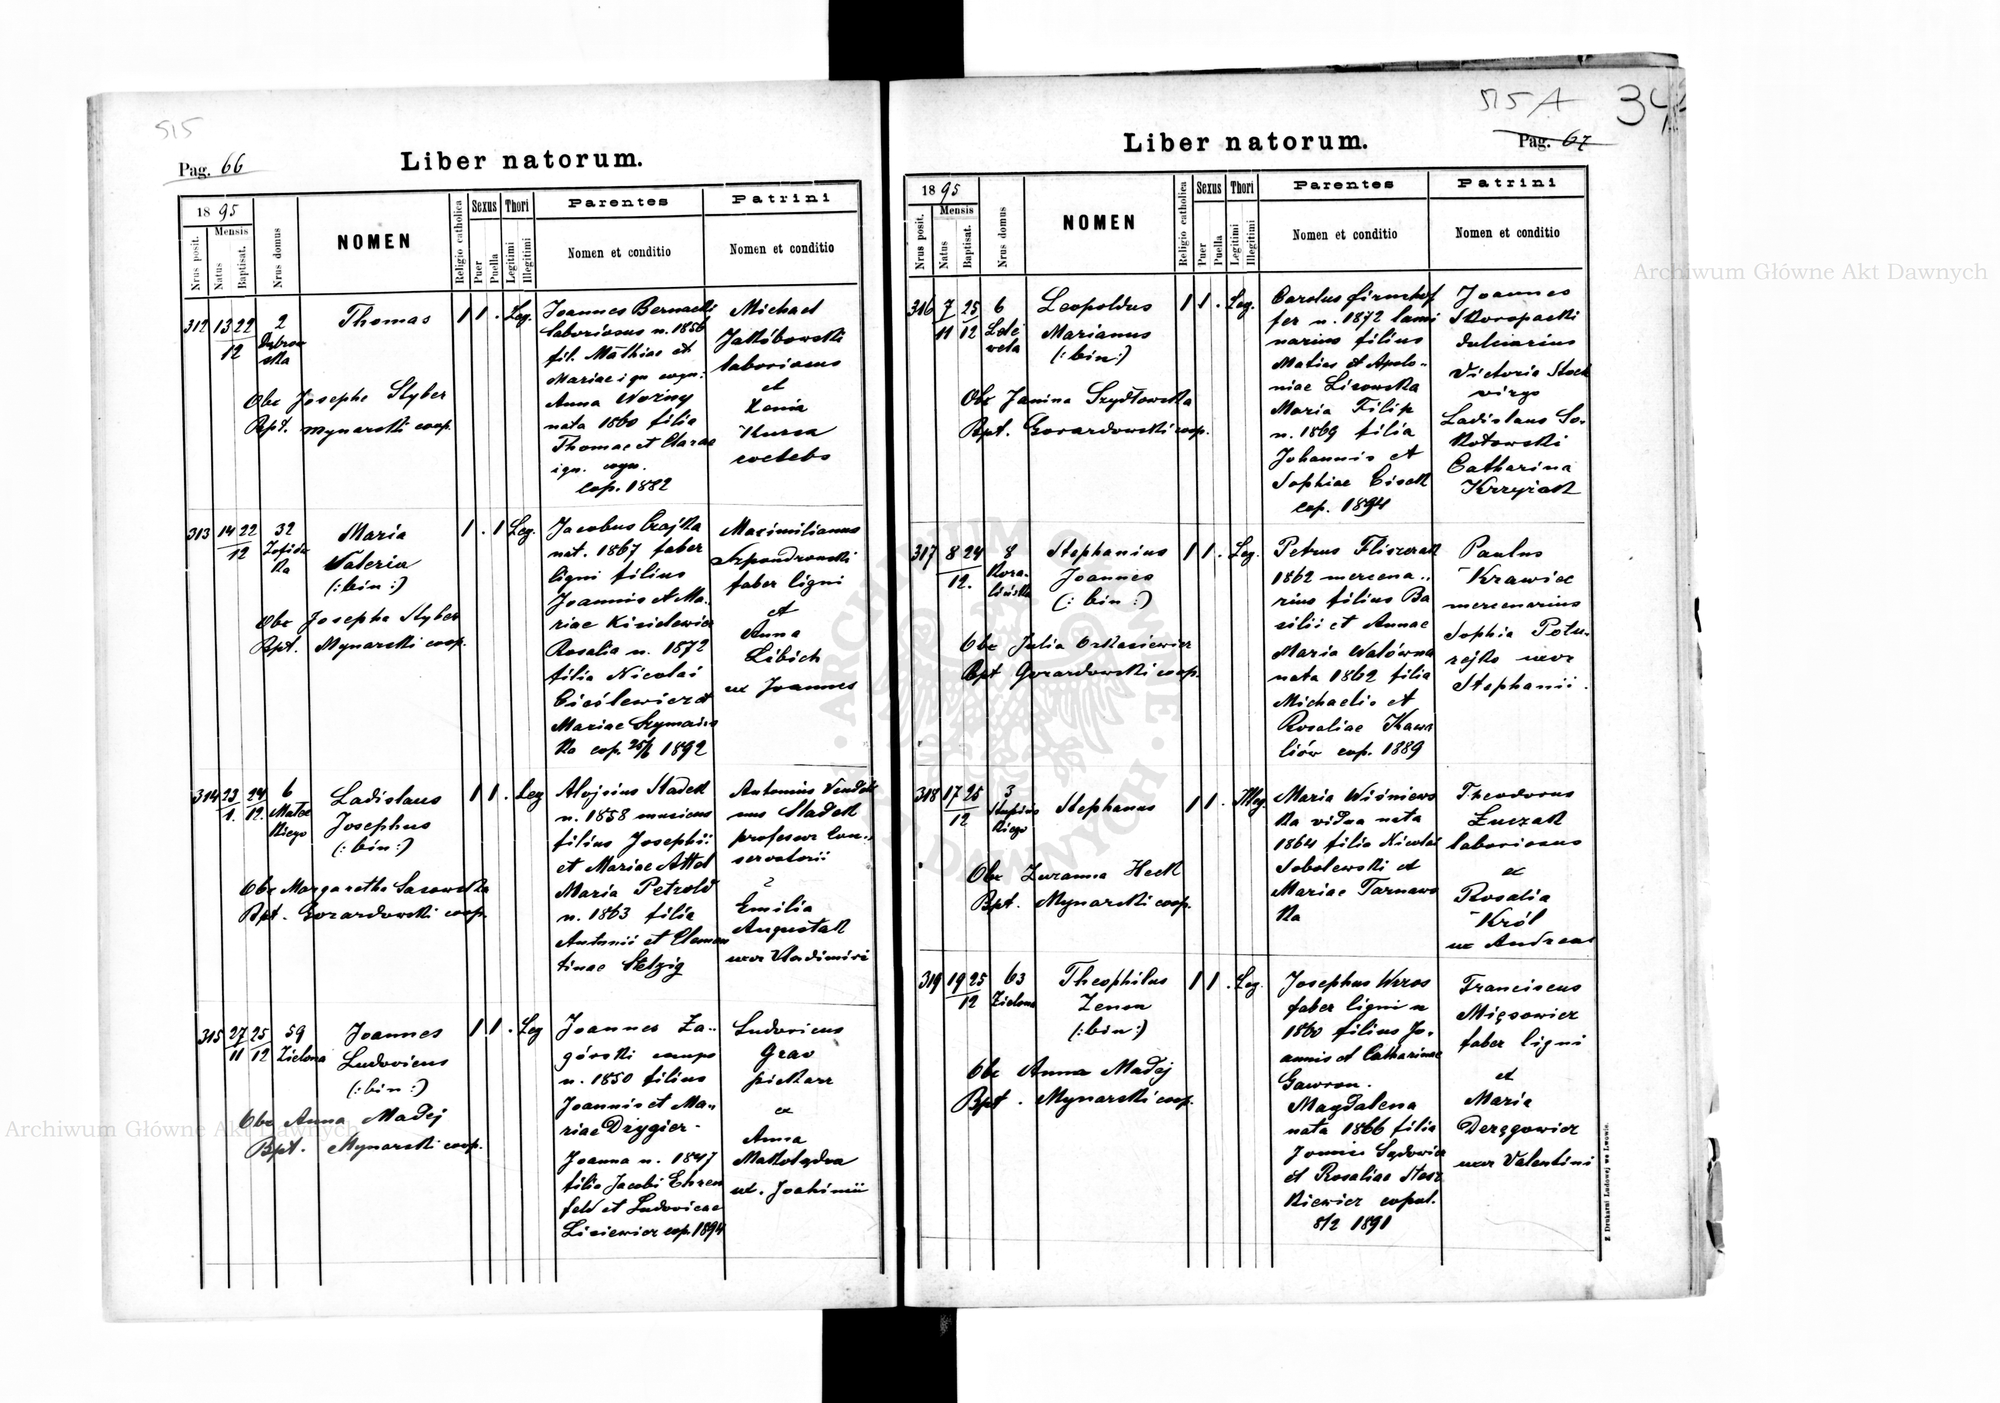 515
Pag. 66
Liber natorum.
1895
Mensis
Nrus posit.
Natus
Baptisat.
Nrus domus
NOMEN
Religio catholica
Sexus
Puer
Puella
Thori
Legitimi
Illegitimi
Parentes
Nomen et conditio
Patrini
Nomen et conditio
312 13 22 2 Thomas 1 1 . Leg.
12
Obr Josepha Styber
Bpt. Mynarski coop.
Joannes Bernacki
laboriosus n. 1856
fil. Mathiae et
Mariae ign cogn:
Anna Woźny
nata 1860 filia
Thomae et Clarae
ign. cogn.
cop. 1882
Michael
Jakóbowski
laboriosus
et
Xenia
Kursa
coelebs
313 14 22 32 Maria 1 . 1 Leg.
12
Valeria
(: bin :)
Obr Josepha Styber
Bpt. Mynarski coop.
Jacobus Czajka
nat. 1867 faber
ligni filius
Joannis et Ma-
riae Kisielewicz
Rosalia n. 1872
filia Nicolai
Cieślewicz et
Mariae Szymańs
ka cop. 25/6 1892
Maximilianus
faber ligni
et
Anna
Libich
ux Joannes
314 23 24 6 Ladislaus 1 1 . Leg
1. 12.
Matej
kiego
Josephus
(: bin :)
Obr Margaretha Sasowska
Bpt. Gorardowski coop.
Aloysius Sladek
n. 1858 musicus
filius Josephi
et Mariae Attel
Maria Petzold
n. 1863 filia
Antonii et Clemen
tinae Stelzig
Antonius Vendel
nus Sladek
professor Con-
servatorii
Emilia
Augustak
uxor Vladimiri
315 27 25 59 Joannes 1 1 . Leg
11 12 Zielona
Ludovicus
(: bin :)
Obr Anna Madej
Bpt. Mynarski coop.
Joannes Za-
górski
n. 1850 filius
Joannis et Ma-
riae Drygier -
Joanna n. 1847
filia Jacobi Ehren
feld et Ludovicae
Lisiewicz cop. 1894
Ludovicus
Grao
piekarz
et
Anna
Makolądra
ux. Joachimii
515 A
34
Pag. 67
Liber natorum.
1895
Mensis
Nrus posit.
Natus
Baptisat.
Nrus domus
NOMEN
Religio catholica
Sexus
Puer
Puella
Thori
Legitimi
Illegitimi
Parentes
Nomen et conditio
Patrini
Nomen et conditio
316 7 25 6 Leopoldus 1 1 . Leg.
11 12
Lele
wela
Marianus
(: bin :)
Obr Janina Szydłowska
Bpt. Gorardowski coop.
Carolus Firmhof
fer n. 1872 lami
narius filius
Matias et Apolo-
niae Lisowska
Maria Filip
n. 1869 filia
Johannis et
Sophiae Cisek
cop. 1894
Joannes
Skoropacki
dulciarius
Victoria Stock
virgo
Ladislaus So-
kołowski
Catharina
Krzyżak
317 8 24 8 Stephanius 1 1 . Leg.
12.
Joannes
(: bin :)
Obr Julia Orkasiewicz
Bpt Gorardowski coop.
Petrus Fliszczak
1862 mercena-
rius filius Ba
silii et Annae
Maria Watówna
nata 1862 filia
Michaelis et
Rosaliae Kawa
liów cop. 1889
Paulus
Krawiec
mercenarius
Sophia Potu-
rejko uxor
Stephanii.
318 17 25 3 Stephanus 1 1 . Illeg.
12
Obr Zuzanna Heck
Bpt. Mynarski coop.
Maria Wiśniews
ka vidua nata
1864 filia Nicolai
Sobolewski et
Mariae Tarnaws
ka
Theodorus
Łuczak
laboriosus
et
Rosalia
Król
ux Andreas
319 19 25 63 Theophilus 1 1 . Leg.
12 Zielona
Zenon
(: bin :)
Obr Anna Madej
Bpt. Mynarski coop.
Josephus Weros
faber ligni n
1860 filius Jo-
annis et Catharinae
Gawron.
Magdalena
nata 1866 filia
Joannis Sądowicz
et Rosaliae Stasz
kiewicz copul.
8/2 1891
Franciscus
Mięsowicz
faber ligni
et
Maria
Deręgowicz
uxor Valentini
Z Drukarni Ludowej we Lwowie.
Archiwum Główne Akt Dawnych
Archiwum Główne Akt Dawnych
ARCHIWUM GŁÓWNE
AKT DAWNYCH